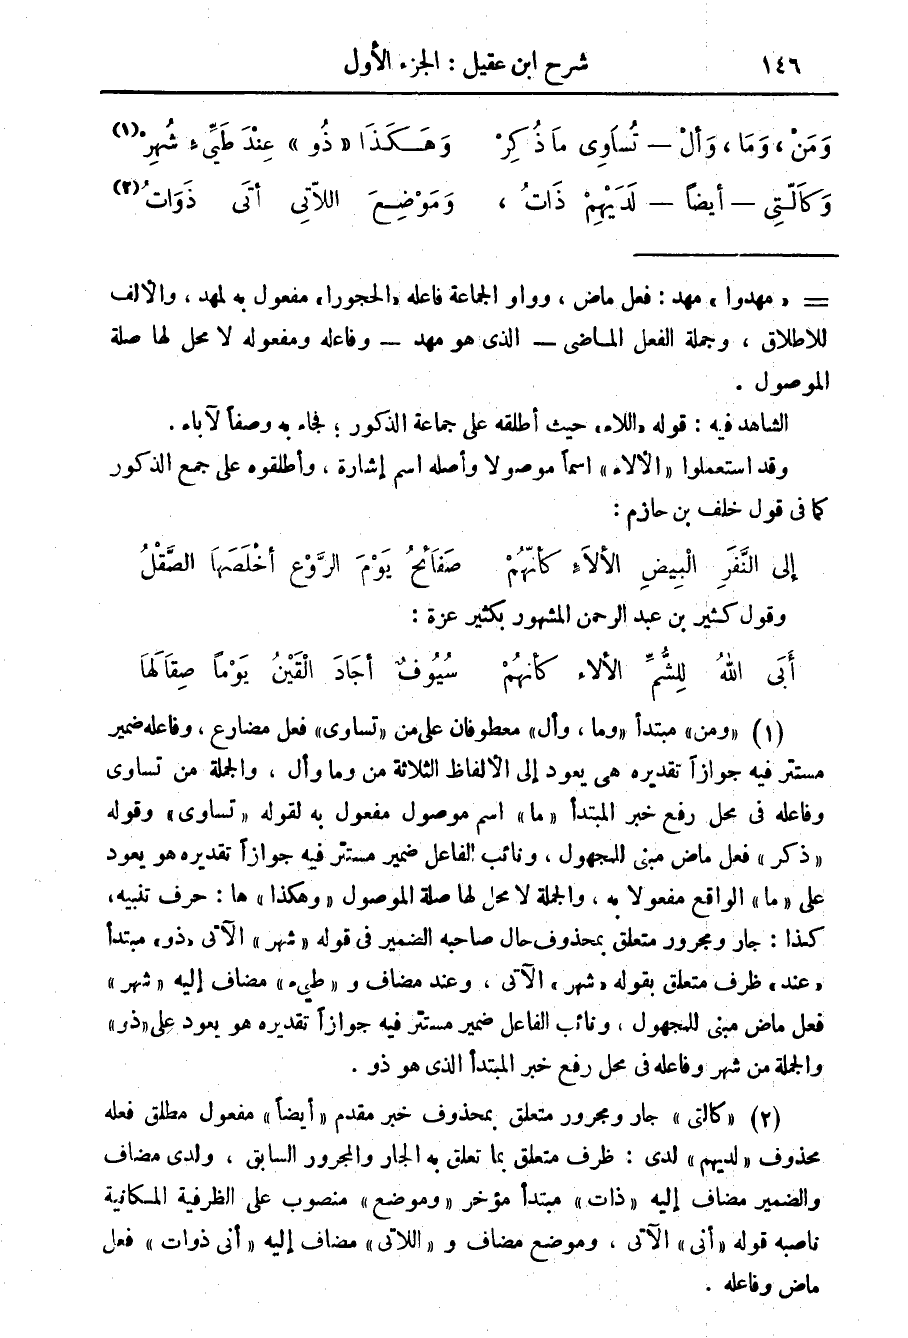 ١٤٦ شرح ابن عقيل : الجزء الأول
وَمَنْ ، وَمَا ، وَألْ — تُسَاوِى مَا ذُكِرْ وَهَـكَذَا « ذُو » عِنْدَ طَيِّىء شُهِرْ (١)
وَكَالَّتِى — أيضاً — لَدَيْهِمْ ذَاتُ ، وَمَوْضِعَ اللاَّتِى أتَى ذَوَاتُ (٢)
= « مهدوا » مهد : فعل ماض ، وواو الجماعة فاعله «الحجورا» مفعول به لمهد ، والألف
للاطلاق ، وجملة الفعل المـاضى — الذى هو مهد — وفاعله ومفعوله لا محل لها صلة
الموصول .
الشاهد فيه : قوله «اللاء» حيث أطلقه على جماعة الذكور ؛ فجاء به وصفاً لآباء .
وقد استعملوا « الألاء » اسماً موصولا وأصله اسم إشارة ، وأطلقوه على جمع الذكور
كما فى قول خلف بن حازم :
إلى النَّفَرِ الْبِيضِ الألاَءِ كَأنَّهُمْ صَفَائحُ يَوْمَ الرَّوْعِ أخْلَصَهَا الصَّقْلُ
وقول كثير بن عبد الرحمن المشهور بكثير عزة :
أَبَى اللهُ لِلشُّمِّ الألاء كَأنهُمْ سُيُوفٌ أجَادَ الْقَيْنُ يَوْماً صِقَالَهَا
(١) « ومن » مبتدأ « وما ، وأل » معطوفان على من « تساوى » فعل مضارع ، وفاعله ضمير
مستتر فيه جوازاً تقديره هى يعود إلى الألفاظ الثلاثة من وما وأل ، والجملة من تساوى
وفاعله فى محل رفع خبر المبتدأ « ما » اسم موصول مفعول به لقوله « تساوى » وقوله
« ذكر » فعل ماض مبنى للمجهول ، ونائب الفاعل ضمير مستتر فيه جوازاً تقديره هو يعود
على « ما » الواقع مفعولا به ، والجملة لا محل لها صلة الموصول « وهكذا » ها : حرف تنبيه،
كذا : جار ومجرور متعلق بمحذوف حال صاحبه الضمير فى قوله « شهر » الآتى «ذو» مبتدأ
« عند » ظرف متعلق بقوله « شهر » الآتى ، وعند مضاف و « طيىء » مضاف إليه « شهر »
فعل ماض مبنى للمجهول ، ونائب الفاعل ضمير مستتر فيه جوازاً تقديره هو يعود على «ذو»
والجملة من شهر وفاعله فى محل رفع خبر المبتدأ الذى هو ذو .
(٢) « كالتى » جار ومجرور متعلق بمحذوف خبر مقدم « أيضاً » مفعول مطلق فعله
محذوف « لديهم » لدى : ظرف متعلق بما تعلق به الجار والمجرور السابق ، ولدى مضاف
والضمير مضاف إليه « ذات » مبتدأ مؤخر « وموضع » منصوب على الظرفية المكانية
ناصبه قوله « أتى » الآتى ، وموضع مضاف و « اللاتى » مضاف إليه « أتى ذوات » فعل
ماض وفاعله .